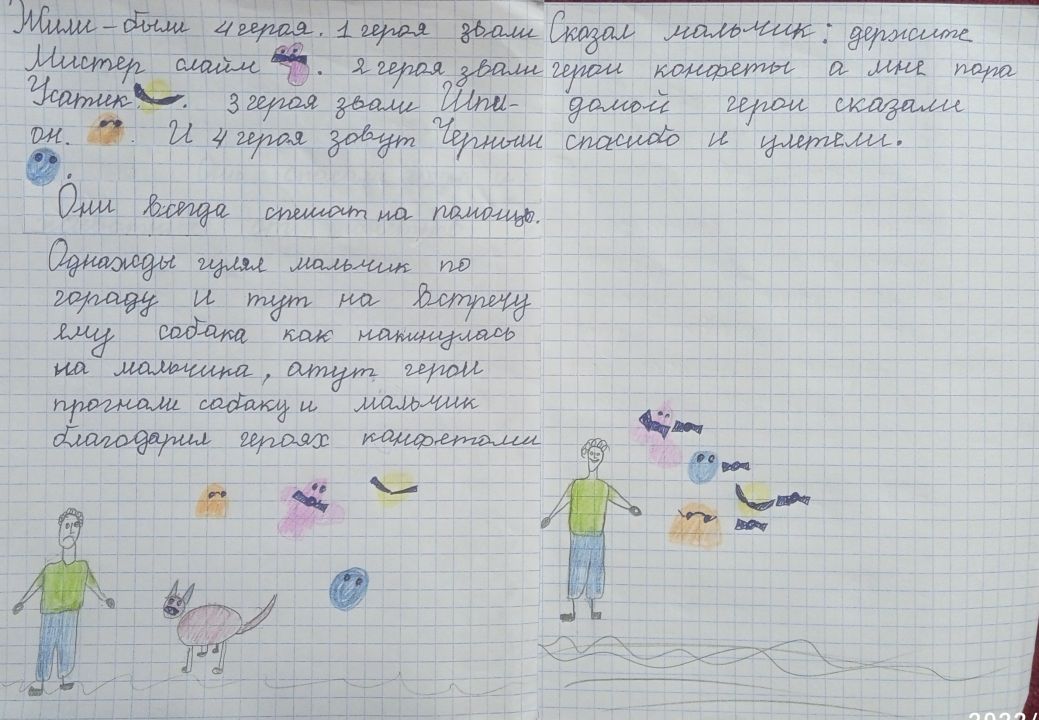 Жили-были 4 героя. 1 героя звали
Мистер слайм . 2 героя звали
Усатик . 3 героя звали Шпи-
он. . И 4 героя зовут Черныш
.
Они всегда спешат на помощь.
Однажды гулял мальчик по
гораду и тут на встречу
ему собака как накинулась
на мальчика, а тут герои
прогнали собаку и мальчик
благодарил героях конфетами
Сказал мальчик: держите
герои конфеты а мне пора
домой герои сказали
спасибо и улетели.